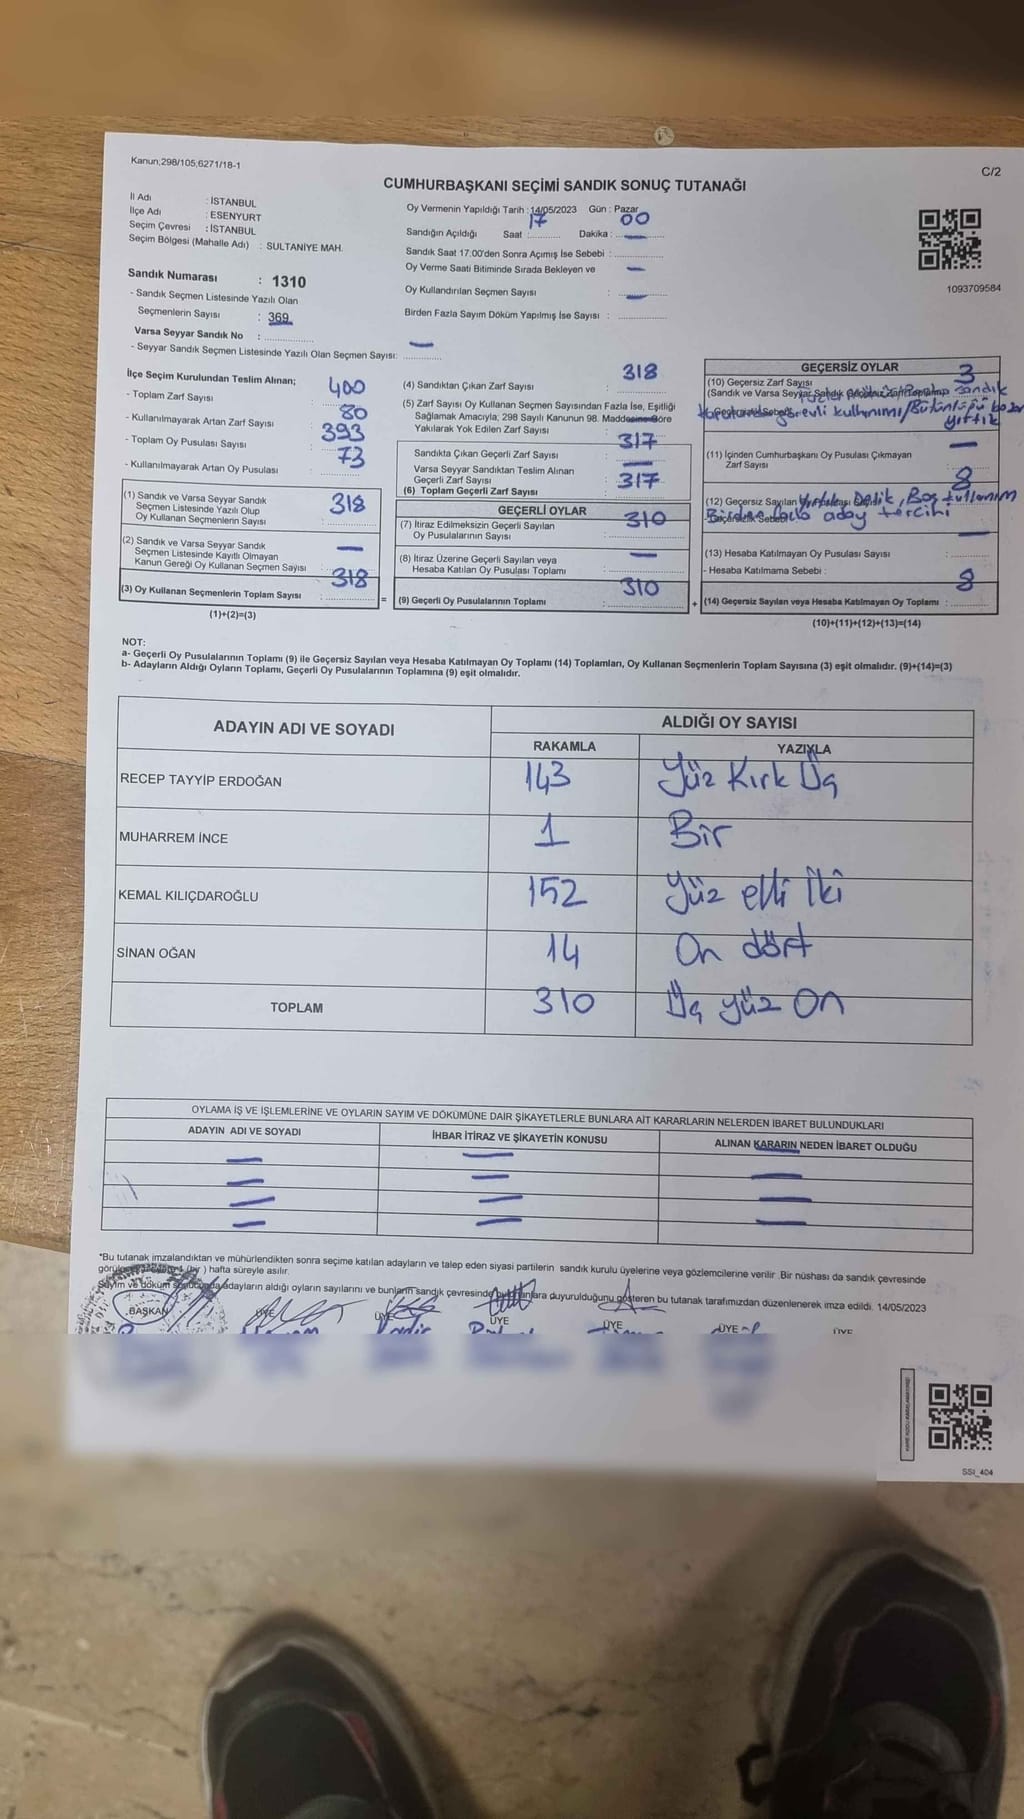 Kanun;298/105,6271/18-1
C/2
CUMHURBAŞKANI SEÇİMİ SANDIK SONUÇ TUTANAĞI
İl Adı : İSTANBUL
İlçe Adı : ESENYURT
Seçim Çevresi : İSTANBUL
Seçim Bölgesi (Mahalle Adı) : SULTANİYE MAH.
Sandık Numarası : 1310
- Sandık Seçmen Listesinde Yazılı Olan
Seçmenlerin Sayısı : 369
Varsa Seyyar Sandık No :
- Seyyar Sandık Seçmen Listesinde Yazılı Olan Seçmen Sayısı: —
Oy Vermenin Yapıldığı Tarih : 14/05/2023 Gün : Pazar
Sandığın Açıldığı Saat : 17 Dakika : 00
Sandık Saat 17.00'den Sonra Açımış İse Sebebi : —
Oy Verme Saati Bitiminde Sırada Bekleyen ve
Oy Kullandırılan Seçmen Sayısı : —
Birden Fazla Sayım Döküm Yapılmış İse Sayısı : —
1093709584
İlçe Seçim Kurulundan Teslim Alınan;
- Toplam Zarf Sayısı 400
- Kullanılmayarak Artan Zarf Sayısı 80
- Toplam Oy Pusulası Sayısı 393
- Kullanılmayarak Artan Oy Pusulası 73
(1) Sandık ve Varsa Seyyar Sandık
Seçmen Listesinde Yazılı Olup
Oy Kullanan Seçmenlerin Sayısı 318
(2) Sandık ve Varsa Seyyar Sandık
Seçmen Listesinde Kayıtlı Olmayan
Kanun Gereği Oy Kullanan Seçmen Sayısı —
(3) Oy Kullanan Seçmenlerin Toplam Sayısı 318
(1)+(2)=(3)
(4) Sandıktan Çıkan Zarf Sayısı : 318
(5) Zarf Sayısı Oy Kullanan Seçmen Sayısından Fazla İse, Eşitliği
Sağlamak Amacıyla; 298 Sayılı Kanunun 98. Maddesine Göre
Yakılarak Yok Edilen Zarf Sayısı : —
Sandıkta Çıkan Geçerli Zarf Sayısı : 317
Varsa Seyyar Sandıktan Teslim Alınan
Geçerli Zarf Sayısı : —
(6) Toplam Geçerli Zarf Sayısı : 317
GEÇERLİ OYLAR
(7) İtiraz Edilmeksizin Geçerli Sayılan
Oy Pusulalarının Sayısı : 310
(8) İtiraz Üzerine Geçerli Sayılan veya
Hesaba Katılan Oy Pusulası Toplamı : —
(9) Geçerli Oy Pusulalarının Toplamı : 310
GEÇERSİZ OYLAR
(10) Geçersiz Zarf Sayısı 3
(Sandık ve Varsa Seyyar Sandık Zarf Toplamı
görevli kullanımı/Bütünlüğü bozan
yırtık
(11) İçinden Cumhurbaşkanı Oy Pusulası Çıkmayan
Zarf Sayısı —
(12) Geçersiz Sayılan 8
Delik, Boş kullanım
Birden fazla aday tercihi
(13) Hesaba Katılmayan Oy Pusulası Sayısı : —
- Hesaba Katılmama Sebebi :
(14) Geçersiz Sayılan veya Hesaba Katılmayan Oy Toplamı : 8
(10)+(11)+(12)+(13)=(14)
NOT:
a- Geçerli Oy Pusulalarının Toplamı (9) ile Geçersiz Sayılan veya Hesaba Katılmayan Oy Toplamı (14) Toplamları, Oy Kullanan Seçmenlerin Toplam Sayısına (3) eşit olmalıdır. (9)+(14)=(3)
b- Adayların Aldığı Oyların Toplamı, Geçerli Oy Pusulalarının Toplamına (9) eşit olmalıdır.
ADAYIN ADI VE SOYADI ALDIĞI OY SAYISI
RAKAMLA YAZIYLA
RECEP TAYYİP ERDOĞAN 143 Yüz Kırk Üç
MUHARREM İNCE 1 Bir
KEMAL KILIÇDAROĞLU 152 Yüz elli İki
SİNAN OĞAN 14 On dört
TOPLAM 310 Üç yüz On
OYLAMA İŞ VE İŞLEMLERİNE VE OYLARIN SAYIM VE DÖKÜMÜNE DAİR ŞİKAYETLERLE BUNLARA AİT KARARLARIN NELERDEN İBARET BULUNDUKLARI
ADAYIN ADI VE SOYADI İHBAR İTİRAZ VE ŞİKAYETİN KONUSU ALINAN KARARIN NEDEN İBARET OLDUĞU
— — —
— — —
— — —
— — —
*Bu tutanak imzalandıktan ve mühürlendikten sonra seçime katılan adayların ve talep eden siyasi partilerin sandık kurulu üyelerine veya gözlemcilerine verilir .Bir nüshası da sandık çevresinde
(bir ) hafta süreyle asılır.
Sayım ve döküm sonucunda adayların aldığı oyların sayılarını ve bunların sandık çevresinde duyurulduğunu gösteren bu tutanak tarafımızdan düzenlenerek imza edildi. 14/05/2023
BAŞKAN ÜYE ÜYE ÜYE ÜYE ÜYE ÜYE
SSI_404